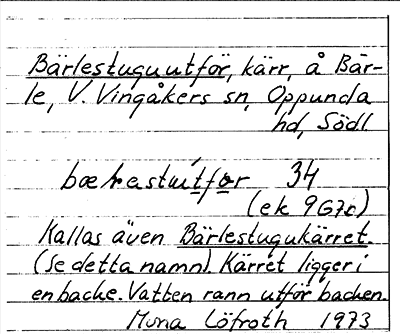 Bärlestuguutför, kärr, å Bär-
le, V. Vingåkers sn, Oppunda
hd, Södl.
34
(ek 9G7c)
Kallas även Bärlestugukärret.
(Se detta namn). Kärret ligger i
en backe. Vatten rann utför backen.
Muna Löfroth 1973